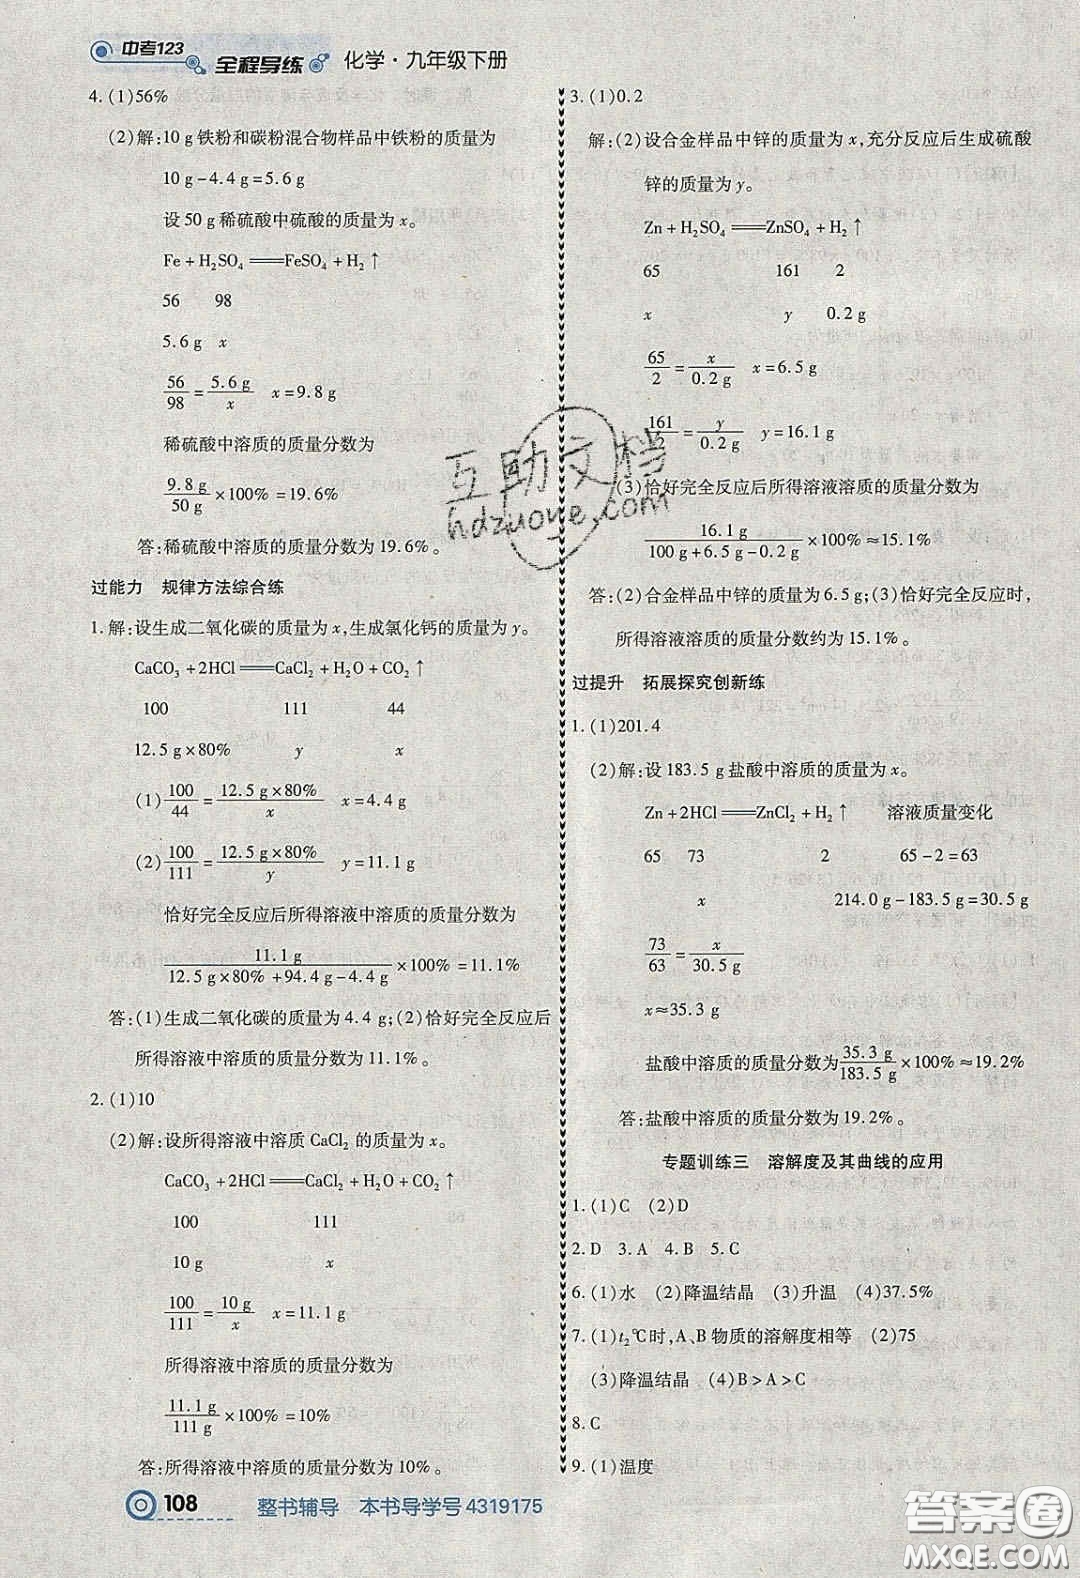 中考123 全程导练 化学·九年级下册
4.(1)56%
(2)解:10 g铁粉和碳粉混合物样品中铁粉的质量为
10 g-4.4 g=5.6 g
设50 g稀硫酸中硫酸的质量为x。
Fe+H₂SO₄══FeSO₄+H₂↑
56 98
5.6 g x
56/98=5.6 g/x x=9.8 g
稀硫酸中溶质的质量分数为
9.8 g/50 g×100%=19.6%
答:稀硫酸中溶质的质量分数为19.6%。
过能力 规律方法综合练
1.解:设生成二氧化碳的质量为x,生成氯化钙的质量为y。
CaCO₃+2HCl══CaCl₂+H₂O+CO₂↑
100 111 44
12.5 g×80% y x
(1)100/44=12.5 g×80%/x x=4.4 g
(2)100/111=12.5 g×80%/y y=11.1 g
恰好完全反应后所得溶液中溶质的质量分数为
11.1 g/12.5 g×80%+94.4 g-4.4 g×100%=11.1%
答:(1)生成二氧化碳的质量为4.4 g;(2)恰好完全反应后
所得溶液中溶质的质量分数为11.1%。
2.(1)10
(2)解:设所得溶液中溶质CaCl₂的质量为x。
CaCO₃+2HCl══CaCl₂+H₂O+CO₂↑
100 111
10 g x
100/111=10 g/x x=11.1 g
所得溶液中溶质的质量分数为
11.1 g/111 g×100%=10%
答:所得溶液中溶质的质量分数为10%。
3.(1)0.2
解:(2)设合金样品中锌的质量为x,充分反应后生成硫酸
锌的质量为y。
Zn+H₂SO₄══ZnSO₄+H₂↑
65 161 2
x y 0.2 g
65/2=x/0.2 g x=6.5 g
161/2=y/0.2 g y=16.1 g
(3)恰好完全反应后所得溶液溶质的质量分数为
16.1 g/100 g+6.5 g-0.2 g×100%≈15.1%
答:(2)合金样品中锌的质量为6.5 g;(3)恰好完全反应时,
所得溶液溶质的质量分数约为15.1%。
过提升 拓展探究创新练
1.(1)201.4
(2)解:设183.5 g盐酸中溶质的质量为x。
Zn+2HCl══ZnCl₂+H₂↑ 溶液质量变化
65 73 2 65-2=63
x 214.0 g-183.5 g=30.5 g
73/63=x/30.5 g
x≈35.3 g
盐酸中溶质的质量分数为35.3 g/183.5 g×100%≈19.2%
答:盐酸中溶质的质量分数为19.2%。
专题训练三 溶解度及其曲线的应用
1.(1)C (2)D
2.D 3.A 4.B 5.C
6.(1)水 (2)降温结晶 (3)升温 (4)37.5%
7.(1)t₂℃时,A、B物质的溶解度相等 (2)75
(3)降温结晶 (4)B>A>C
8.C
9.(1)温度
108 整书辅导 本书导学号4319175
互助文档
hdzuoye.com
答案圈
MXQE.COM